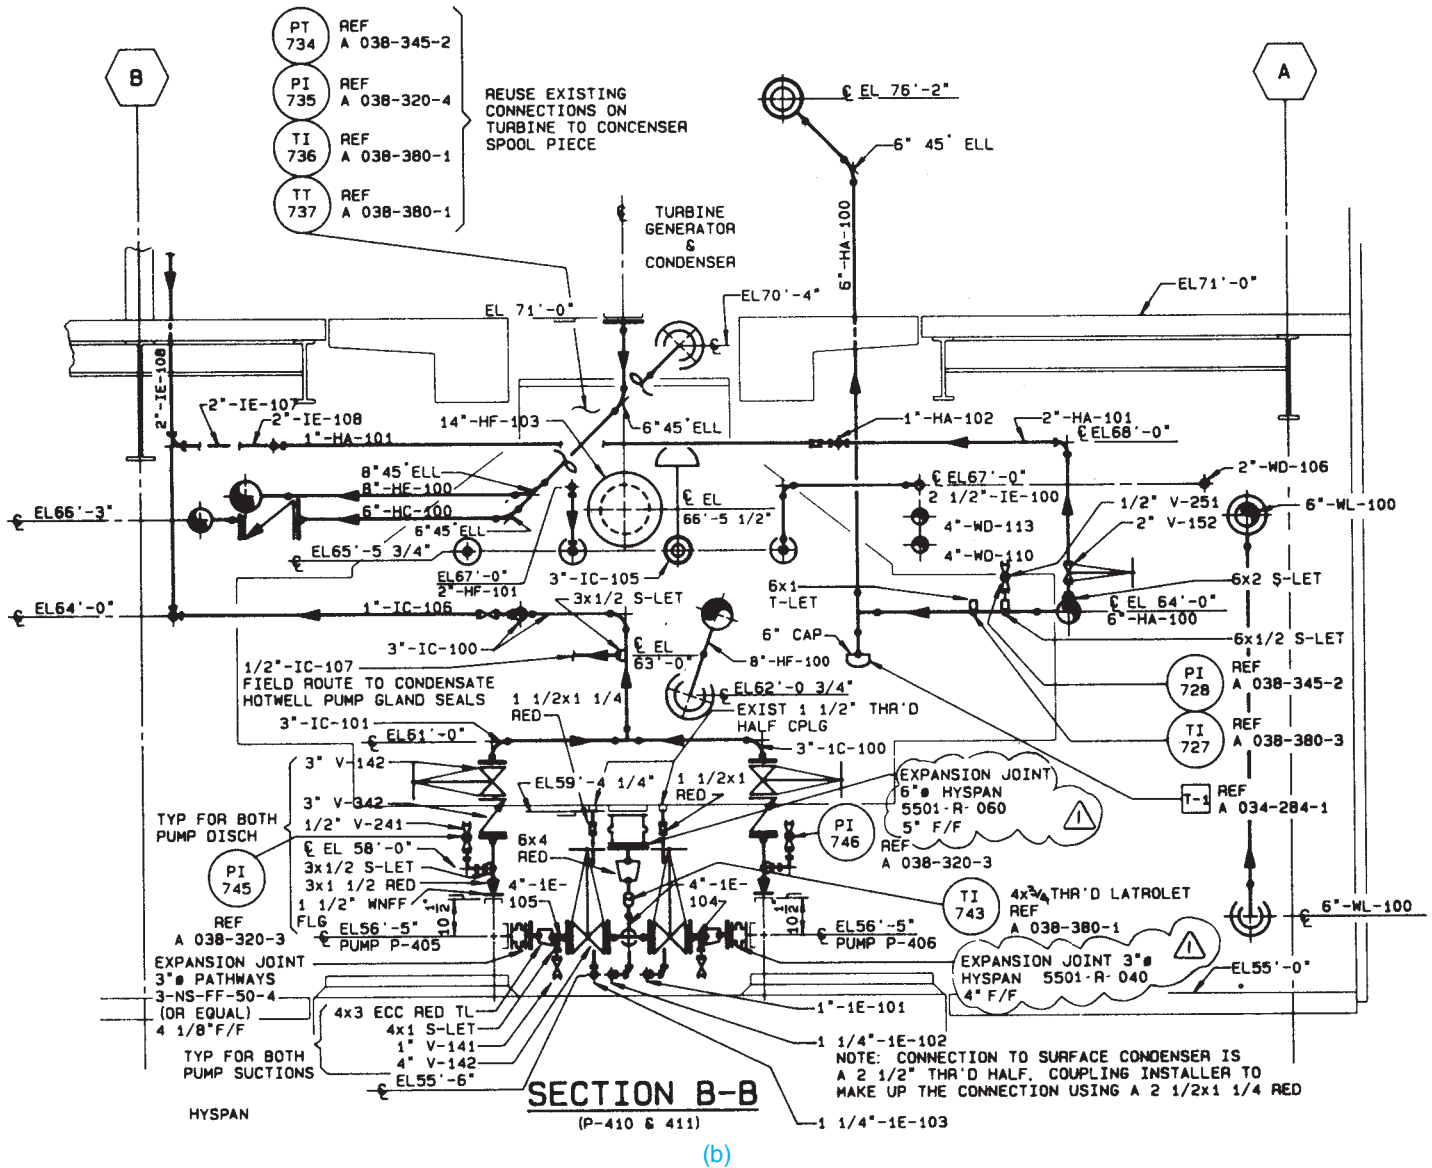 PT
734
REF
A 038-345-2
PI
735
REF
A 038-320-4
TI
736
REF
A 038-380-1
TT
737
REF
A 038-380-1
REUSE EXISTING
CONNECTIONS ON
TURBINE TO CONCENSER
SPOOL PIECE
B
A
℄ EL 76'-2"
6" 45° ELL
6"-HA-100
℄ TURBINE
GENERATOR
&
CONDENSER
EL 71'-0"
EL70'-4"
℄
EL71'-0"
2"-IE-108
2"-IE-107
2"-IE-108
1"-HA-101
14"-HF-103
6"45°ELL
1"-HA-102
2"-HA-101
℄ EL68'-0"
8"45°ELL
8"-HE-100
6"-HC-100
6"45°ELL
℄ EL66'-3"
℄ EL65'-5 3/4"
℄ EL
66'-5 1/2"
℄ EL67'-0"
2 1/2"-IE-100
4"-WD-113
4"-WD-110
2"-WD-106
1/2" V-251
2" V-152
6"-WL-100
EL67'-0"
2"-HF-101
3"-IC-105
3x1/2 S-LET
6x1
T-LET
6x2 S-LET
℄ EL64'-0"
1"-IC-106
3"-IC-100
℄ EL 64'-0"
6"-HA-100
6x1/2 S-LET
6" CAP
℄ EL
63'-0"
8"-HF-100
1/2"-IC-107
FIELD ROUTE TO CONDENSATE
HOTWELL PUMP GLAND SEALS
1 1/2x1 1/4
RED
℄ EL62'-0 3/4"
EXIST 1 1/2" THR'D
HALF CPLG
PI
728
REF
A 038-345-2
TI
727
REF
A 038-380-3
3"-IC-101
℄ EL61'-0"
3"-1C-100
3" V-142
EL59'-4 1/4"
1 1/2x1
RED
EXPANSION JOINT
6"ø HYSPAN
5501-R-060
5" F/F
1
T-1
REF
A 034-284-1
TYP FOR BOTH
PUMP DISCH
3" V-342
1/2" V-241
℄ EL 58'-0"
3x1/2 S-LET
3x1 1/2 RED
1 1/2" WNFF
FLG
PI
745
REF
A 038-320-3
6x4
RED
PI
746
REF
A 038-320-3
4"-1E-
105
4"-1E-
104
TI
743
4x3/4 THR'D LATROLET
REF
A 038-380-1
10 1/2"
10 1/2"
℄ EL56'-5"
PUMP P-405
℄ EL56'-5"
PUMP P-406
℄ 6"-WL-100
EXPANSION JOINT
3"ø PATHWAYS
3-NS-FF-50-4
(OR EQUAL)
4 1/8"F/F
EXPANSION JOINT 3"ø
HYSPAN 5501-R-040
4" F/F
1
EL55'-0"
4x3 ECC RED TL
4x1 S-LET
1" V-141
4" V-142
℄ EL55'-6"
TYP FOR BOTH
PUMP SUCTIONS
1"-1E-101
1 1/4"-1E-102
NOTE: CONNECTION TO SURFACE CONDENSER IS
A 2 1/2" THR'D HALF. COUPLING INSTALLER TO
MAKE UP THE CONNECTION USING A 2 1/2x1 1/4 RED
HYSPAN
SECTION B-B
(P-410 & 411)
1 1/4"-1E-103
(b)